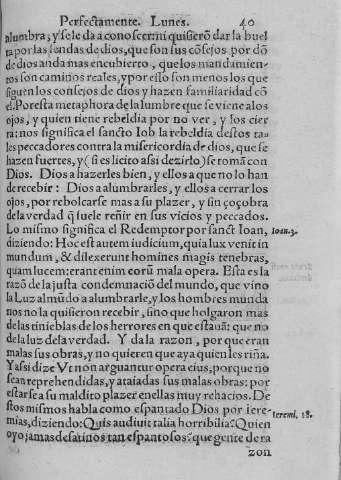 Perfectamente. Lunes. 40
alumbra; y se le da a conoscer: ni quisierõ dar la buel
ta por las sendas de dios, que son sus cõsejos por dõ
de dios anda mas encubierto, que los mandamien-
tos son caminos reales, y por esso son menos los que
siguen los consejos de dios y hazen familiaridad cõ
el. Por esta metaphora de la lumbre que se viene a los
ojos, y quien tiene rebeldia por no ver, y los cier
ra: nos significa el sancto Iob la rebeldia destos ta-
les peccadores contra la misericordia de dios, que se
hazen fuertes, y (si es licito assi dezirlo) se romã con
Dios. Dios a hazerles bien, y ellos a que no lo han
de recebir: Dios a alumbrarles, y ellos a cerrar los
ojos, por rebolcarse mas a su plazer, y sin çoçobra
de la verdad q̃ suele reñir en sus vicios y peccados.
Lo mismo significa el Redemptor por sanct Ioan, Ioan. 3.
diziendo: Hoc est autem iudicium, quia lux venit in
mundum, & dilexerunt homines magis tenebras,
quam lucem: erant enim eorũ mala opera. Esta es la
razõ de la justa condemnaciõ del mundo, que vino
la Luz al mũdo a alumbrarle, y los hombres munda
nos no la quisieron recebir, sino que holgaron mas
de las tinieblas de los herrores en que estauã: que no
de la luz de la verdad. Y da la razon, por que eran
malas sus obras, y no quieren que aya quien les riña.
Y assi dize Vt non arguantur opera eius, porque no
sean reprehendidas, y atajadas sus malas obras: por
estarse a su maldito plazer en ellas muy rehacios. De
stos mismos habla como espantado Dios por iere-
mias, diziendo: Quis audiuit talia horribilia? Quien Ieremi. 18.
oyo jamas desatinos tan espantosos? que gente de ra
zon